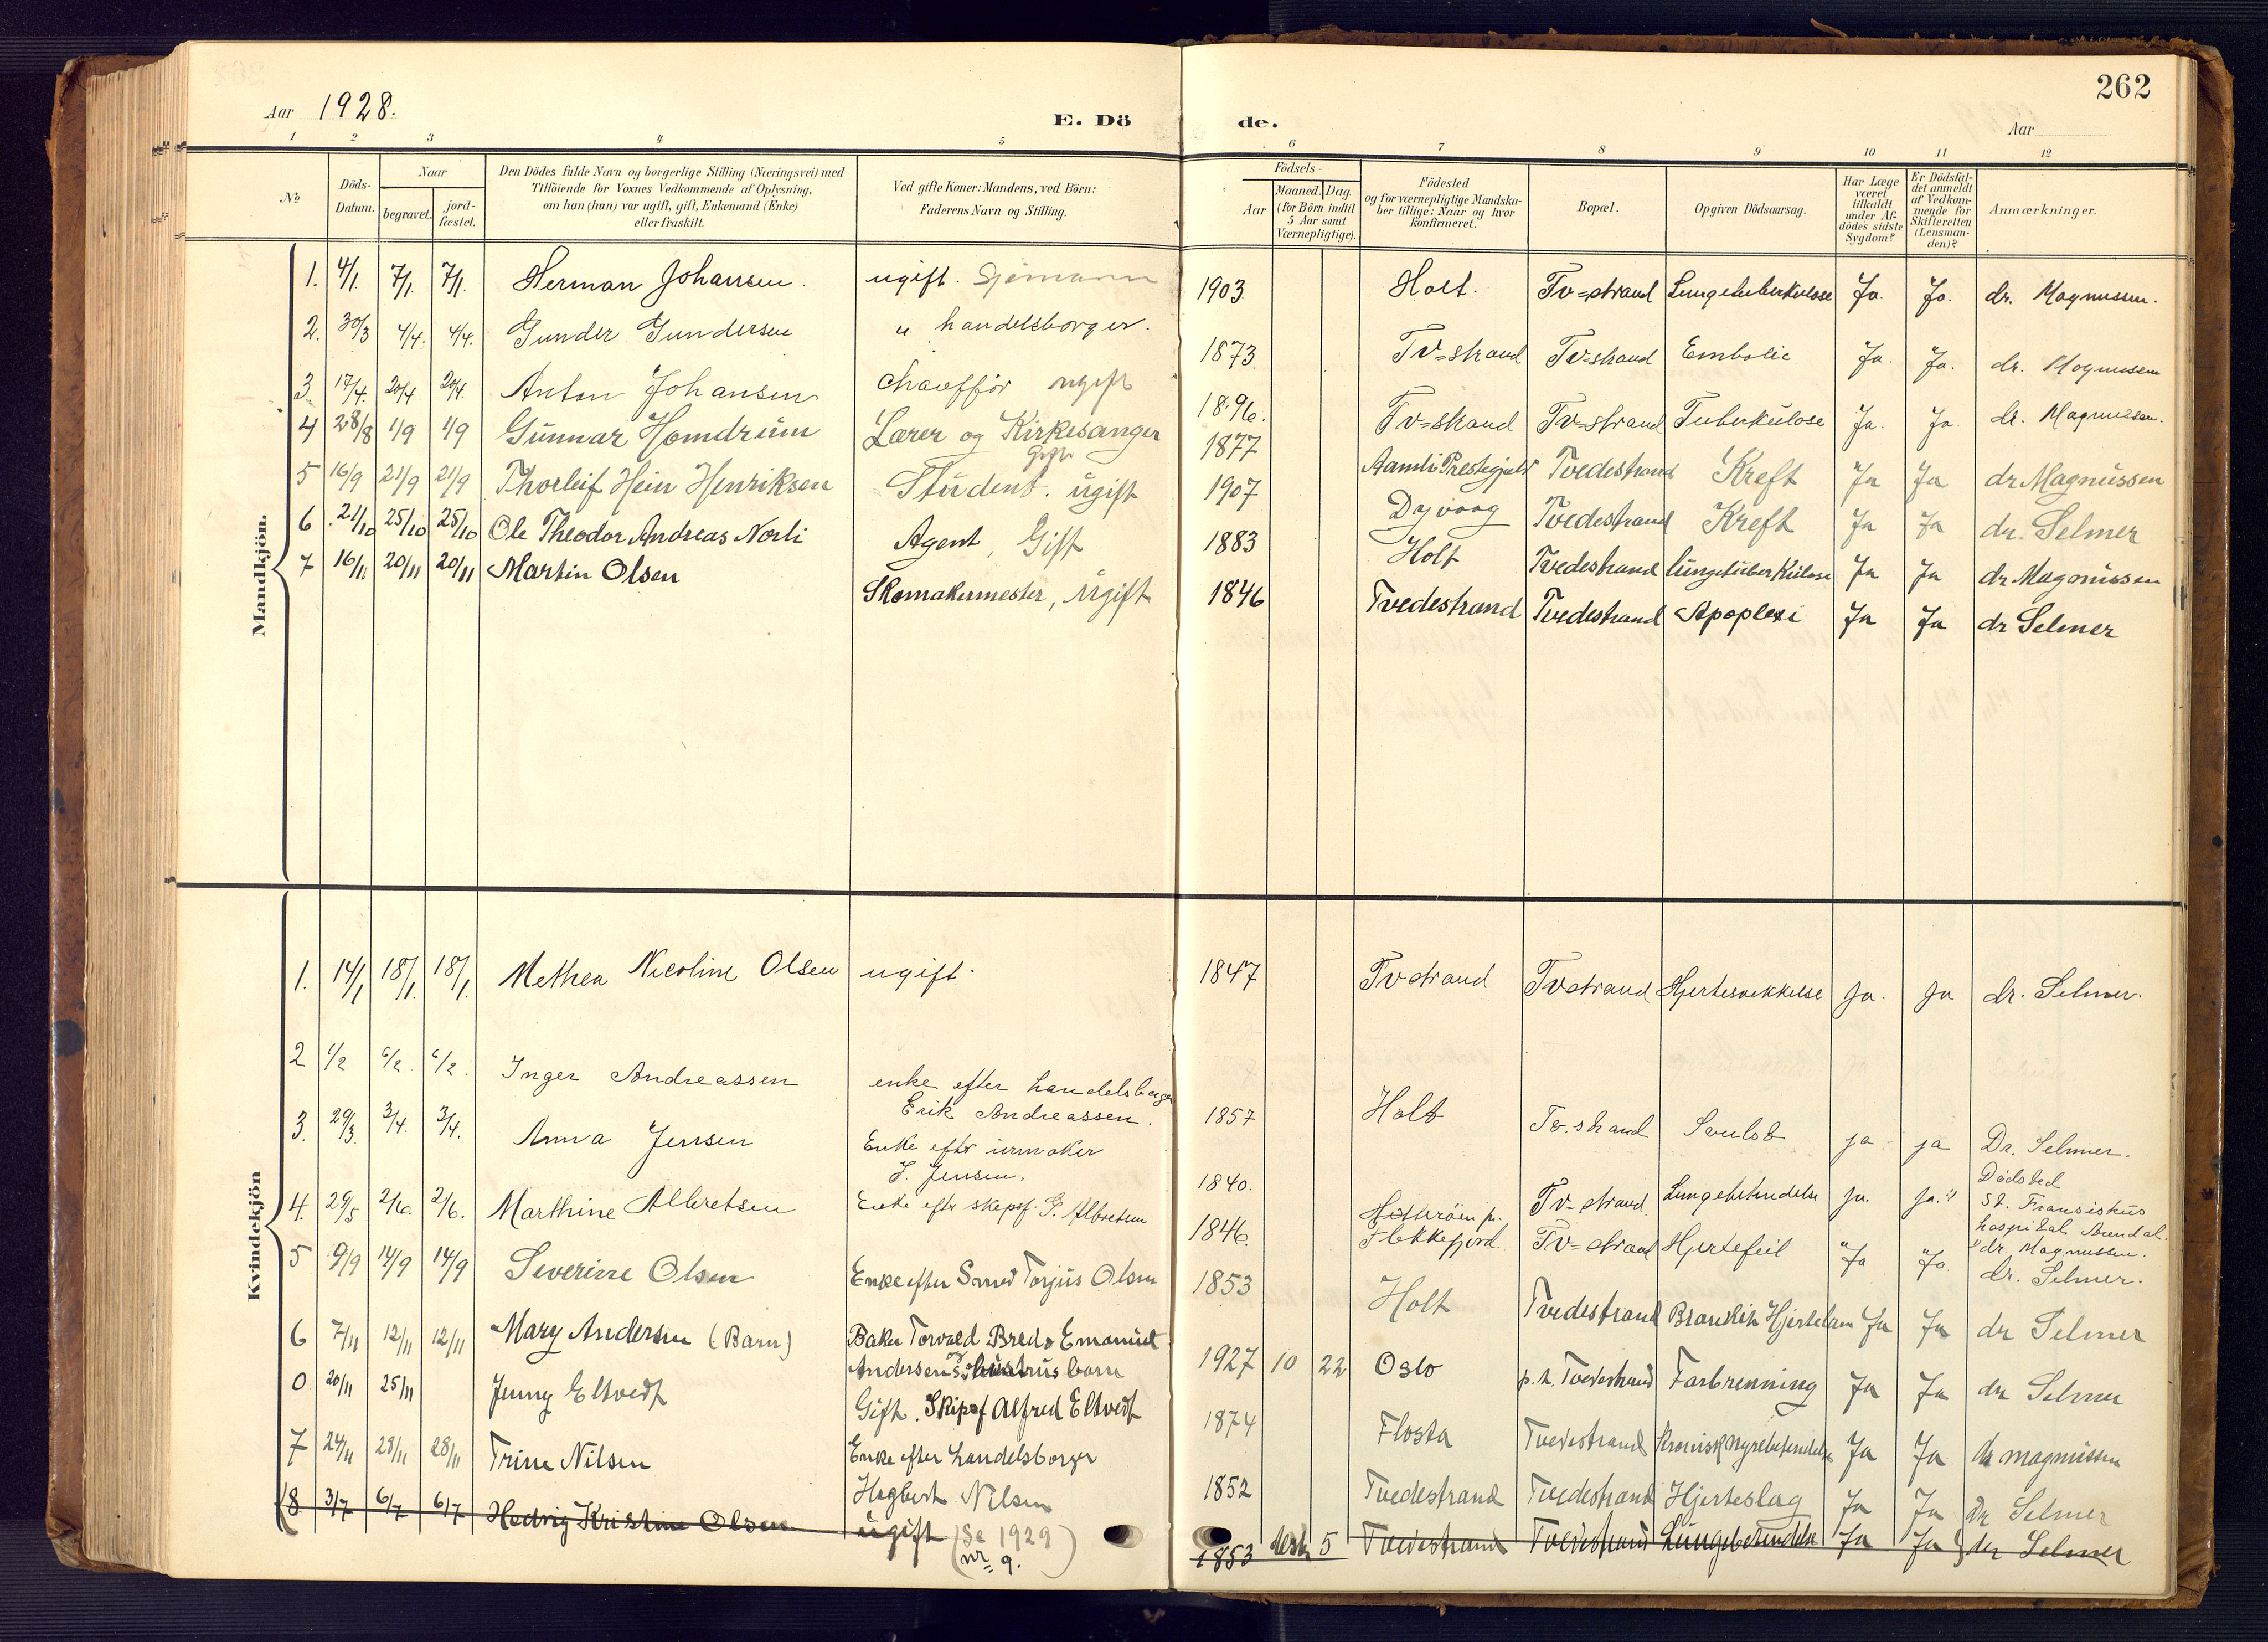 262
Aar 1928.
E. Dö de.
Aar
1 2 3 4 5 6 7 8 9 10 11 12
No
Döds-Datum.
Naar
begravet.
jord-fæstet.
Den Dödes fulde Navn og borgerlige Stilling (Næringsvei) med
Tilföiende for Voxnes Vedkommende af Oplysning,
om han (hun) var ugift, gift, Enkemand (Enke)
eller fraskilt.
Ved gifte Koner: Mandens, ved Börn:
Faderens Navn og Stilling.
Födsels-
Aar
Maaned. Dag.
(for Börn indtil
5 Aar samt
Værnepligtige).
Födested
og for værnepligtige Mandska-
ber tillige: Naar og hvor
konfirmeret.
Bopæl.
Opgiven Dödsaarsag.
Har Læge
været
tilkaldt
under Af-
dödes sidste
Sygdom?
Er Dödsfal-
det anmeldt
af Vedkom-
mende for
Skifteretten
(Lensman-
den)?
Anmærkninger.
Mandkjön.
1. 4/1. 7/1. 7/1. Herman Johansen. ugift. Sjømann 1903. Holt. Tv=strand Lungetuberkulose Ja. Ja. dr. Magnussen.
2. 30/3 4/4. 4/4. Gunder Gundersen " handelsborger. 1873. Tv=strand Tv=strand Embolie Ja. Ja. dr. Magnussen
3. 17/4. 20/4 20/4. Anton Johansen chauffør ugift 1896. Tv=strand Tv=strand Tuberkulose Ja. Ja. dr. Magnussen.
4 28/8 1/9 1/9 Gunnar Homdrum Lærer og Kirkesanger Gift 1877 Aamli Prestegjeld Tvedestrand Kreft Ja Ja dr Magnussen
5 16/9 21/9 21/9 Thorleif Hein Henriksen Student. ugift 1907 Dyvaag Tvedestrand Kreft Ja Ja dr. Selmer
6 21/10 25/10 25/10 Ole Theodor Andreas Norli Agent, Gift 1883 Holt Tvedestrand lungetuberkulose Ja Ja dr Magnussen
7 16/11 20/11 20/11 Martin Olsen Skomakermester, ugift 1846 Tvedestrand Tvedestrand Apoplexi Ja Ja dr Selmer
Kvindekjön
1. 14/1 18/1. 18/1. Methea Nicoline Olsen ugift. 1847 Tvstrand Tvstrand Hjertesvekkelse Ja. Ja dr. Selmer.
2 1/2 6/2. 6/2. Inger Andreassen enke efter handelsborger
Erik Andreassen. 1857 Holt Tv.strand Svulst ja ja Dr. Selmer.
3. 29/3. 3/4. 3/4. Anna Jensen Enke efter urmaker
J. Jensen. 1840. Hitterøen pr.
Flekkefjord. Tv=strand Lungebetendelse ja. ja. Dødsted
St. Fransiskus
hospital Arendal.
dr. Magnussen.
4. 29/5 2/6. 2/6. Marthine Albretsen Enke eftr skipsf. Albretsen 1846. Tv=strand Hjertefeil Ja Ja. dr. Selmer.
5 9/9 14/9 14/9 Severine Olsen Enke efter Smed Torjus Olsen 1853 Holt Tvedestrand Hjertelam Ja Ja dr Selmer
6 7/11 12/11 12/11 Mary Andersen (Barn) Baker Torvald Bredo Emanuel
Andersen og hustrus barn 1927 10 22 Oslo p.t. Tvedestrand Forbrenning Ja Ja dr Selmer
0 20/11 25/11 Jenny Eltvedt Gift. Skipsf Alfred Eltvedt 1874 Flosta Tvedestrand Kronisk Nyrebetendelse Ja Ja dr magnussen
7 24/11 28/11 28/11 Trine Nilsen Enke efter handelsborger
Hagbert Nilsen 1852 Tvedestrand Tvedestrand Hjerteslag Ja Ja Dr Selmer
(8 3/7 6/7 6/7 Hedvig Kristine Olsen ugift (Se 1929
nr 9.) 1853 5 Tvedestrand Tvedestrand Lungebetendelse Ja Ja dr Selmer